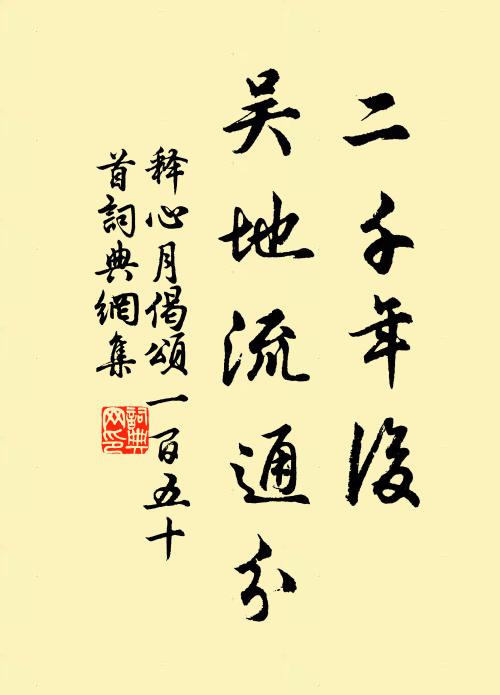 二千年後
吴地流通分
释心月偈頌一百五十
首詞典網集
詞典
网印